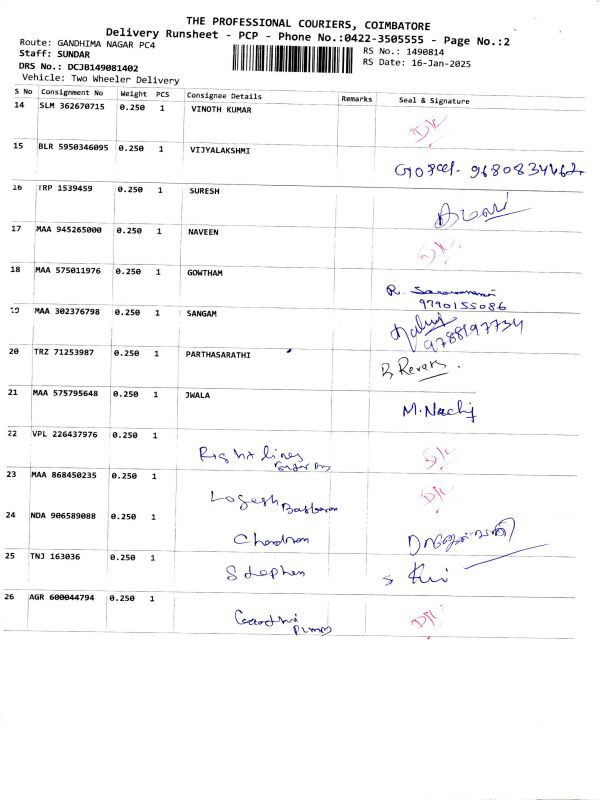 THE PROFESSIONAL COURIERS, COIMBATORE
Delivery Runsheet - PCP - Phone No.:0422-3505555 - Page No.:2
Route: GANDHIMA NAGAR PC4
RS No.: 1490814
Staff: SUNDAR
RS Date: 16-Jan-2025
DRS No.: DCJB149081402
Vehicle: Two Wheeler Delivery
S No Consignment No Weight PCS Consignee Details Remarks Seal & Signature
14 SLM 362670715 0.250 1 VINOTH KUMAR
15 BLR 5950346095 0.250 1 VIJYALAKSHMI
16 TRP 1539459 0.250 1 SURESH
17 MAA 945265000 0.250 1 NAVEEN
18 MAA 575011976 0.250 1 GOWTHAM
9790155086
19 MAA 302376798 0.250 1 SANGAM
9788197734
20 TRZ 71253987 0.250 1 PARTHASARATHI
21 MAA 575795648 0.250 1 JWALA
22 VPL 226437976 0.250 1 Right lines
23 MAA 868450235 0.250 1 Logesh Baskaran
24 NDA 906589088 0.250 1 Chandran
25 TNJ 163036 0.250 1 Stephen
26 AGR 600044794 0.250 1